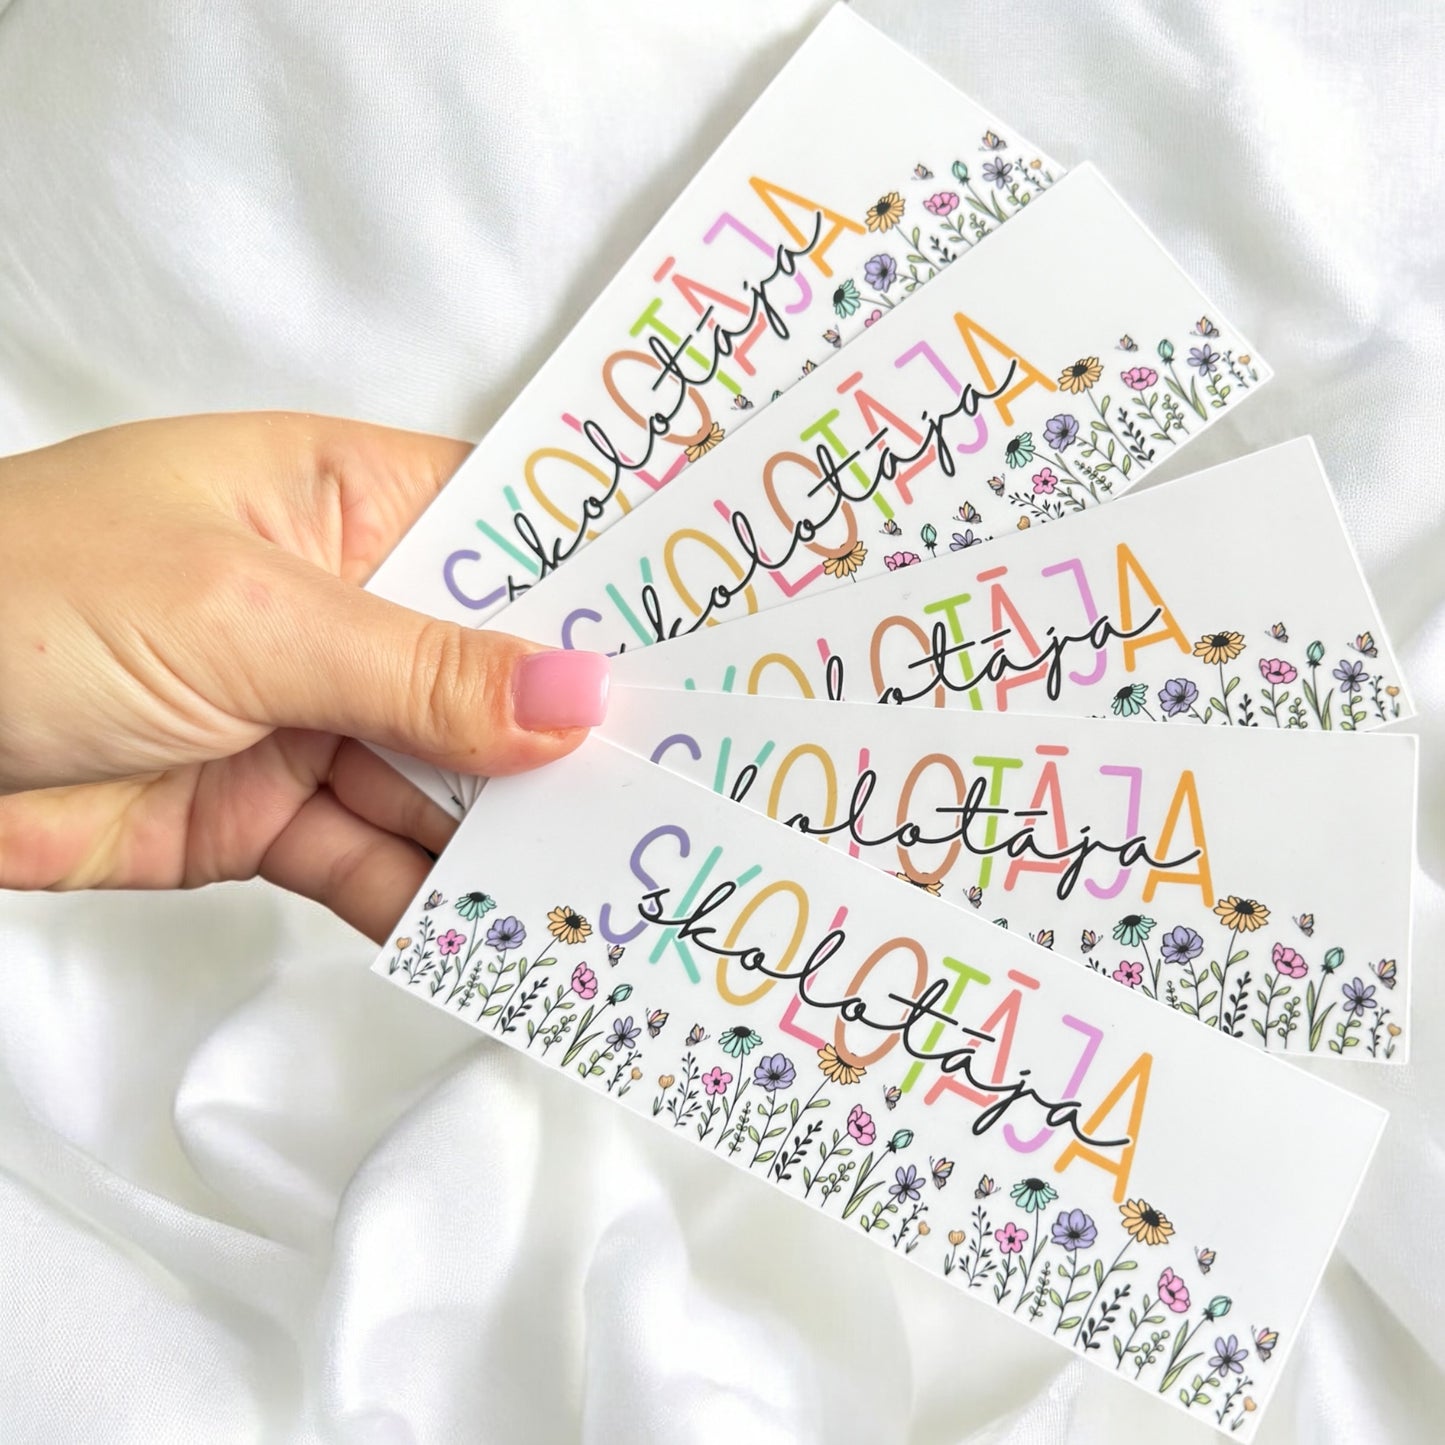 SKOLOTĀJA
skolotāja
SKOLOTĀJA
skolotāja
SKOLOTĀJA
skolotāja
SKOLOTĀJA
skolotāja
SKOLOTĀJA
skolotāja